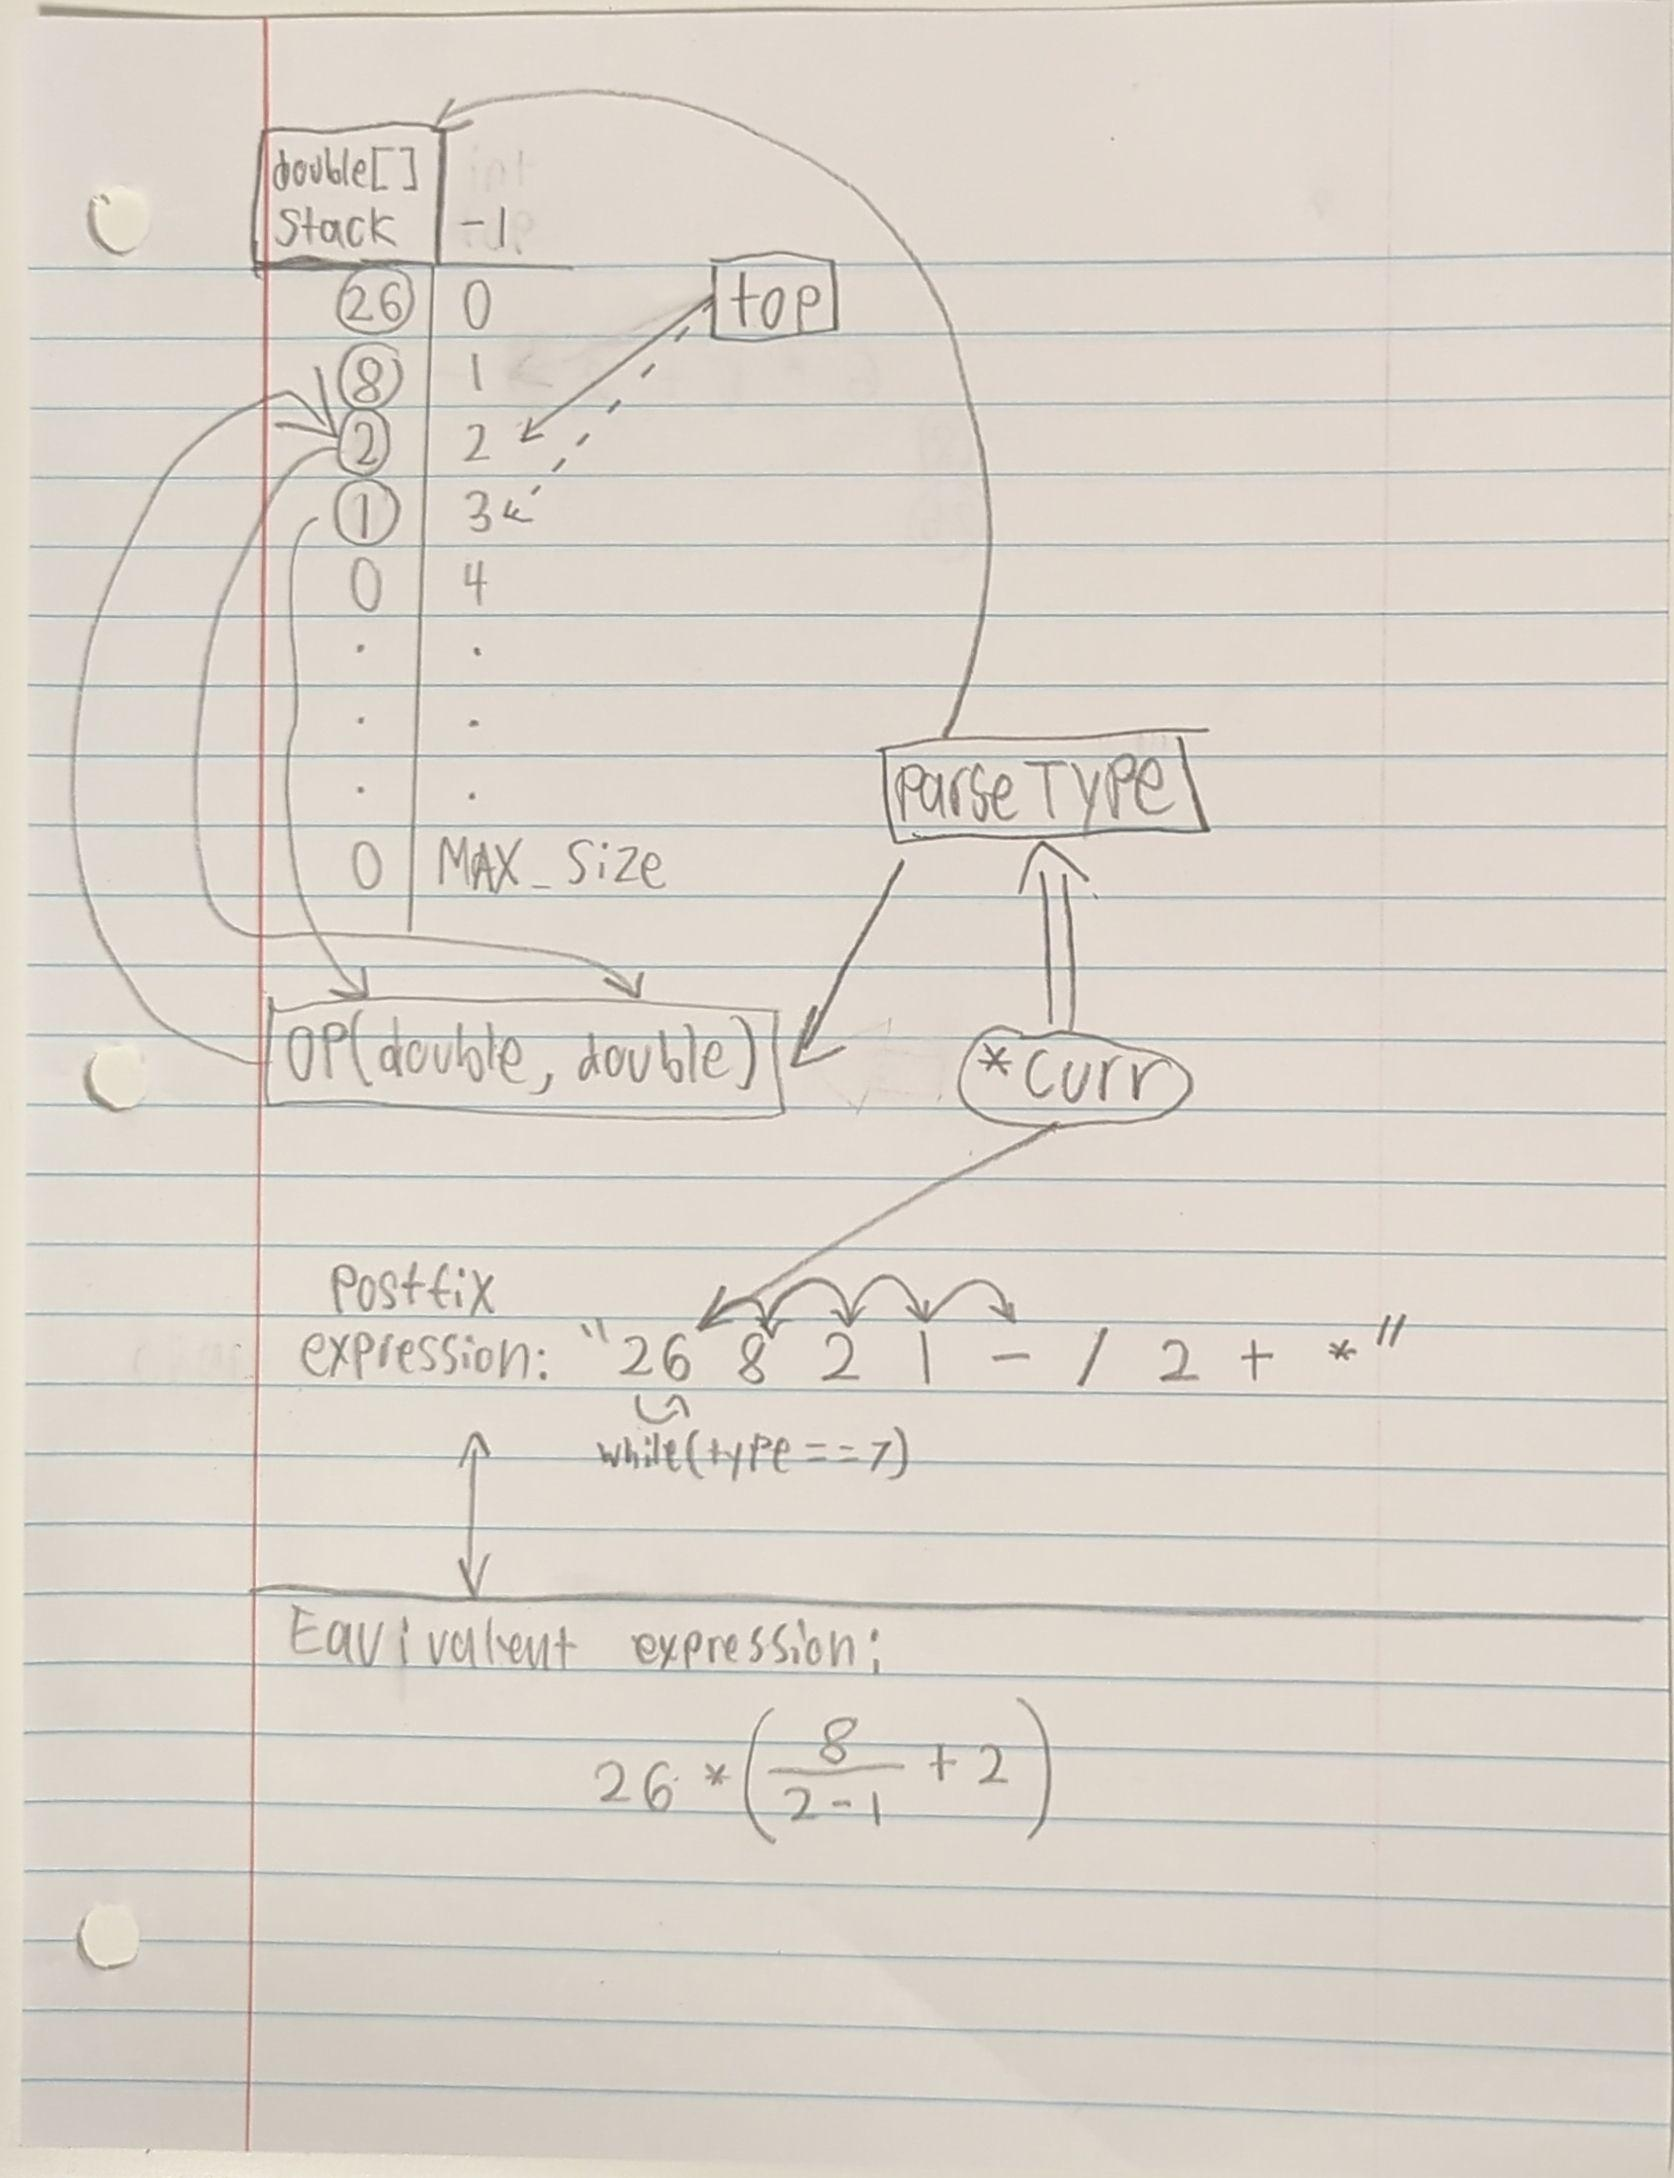 double[]
Stack -1
26 0
top
8 1
2 2
1 3
0 4
. .
. .
. .
parseType
0 MAX_Size
OP(double, double)
*curr
Postfix
expression: "26 8 2 1 - / 2 + *"
while(type==7)
Eauivalent expression:
26 * ( 8 / 2-1 + 2 )